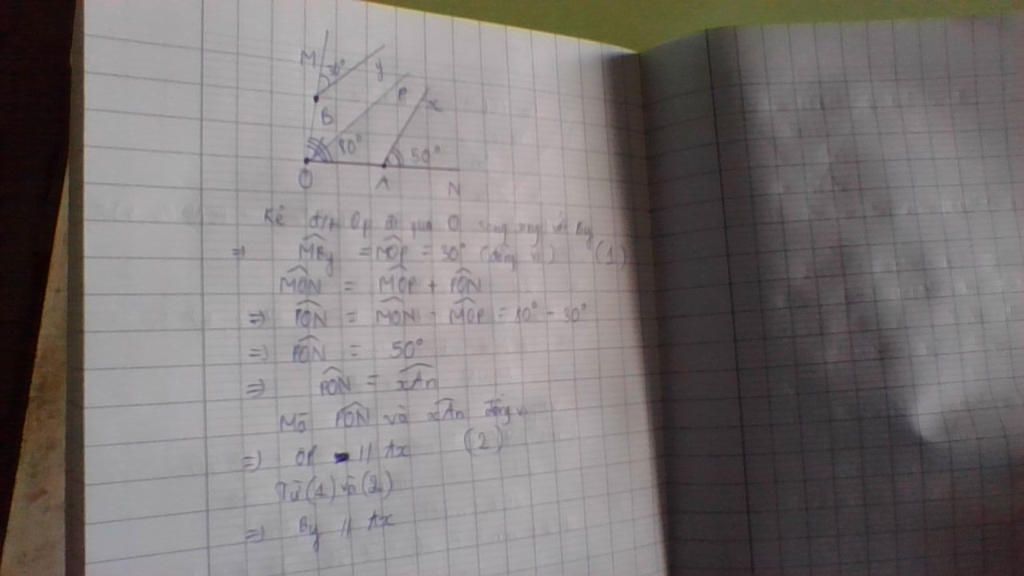 M 30° y
P x
B
80° 50°
O A N
Kẻ đth Op đi qua O song song với By
=> M̂By = M̂OP = 30° (đồng vị) (1)
M̂ON = M̂OP + P̂ON
=> P̂ON = M̂ON - M̂OP = 80° - 30°
=> P̂ON = 50°
=> P̂ON = x̂An
Mà P̂ON và x̂An đồng vị
=> OP // Ax (2)
Từ (1) và (2)
=> By // Ax